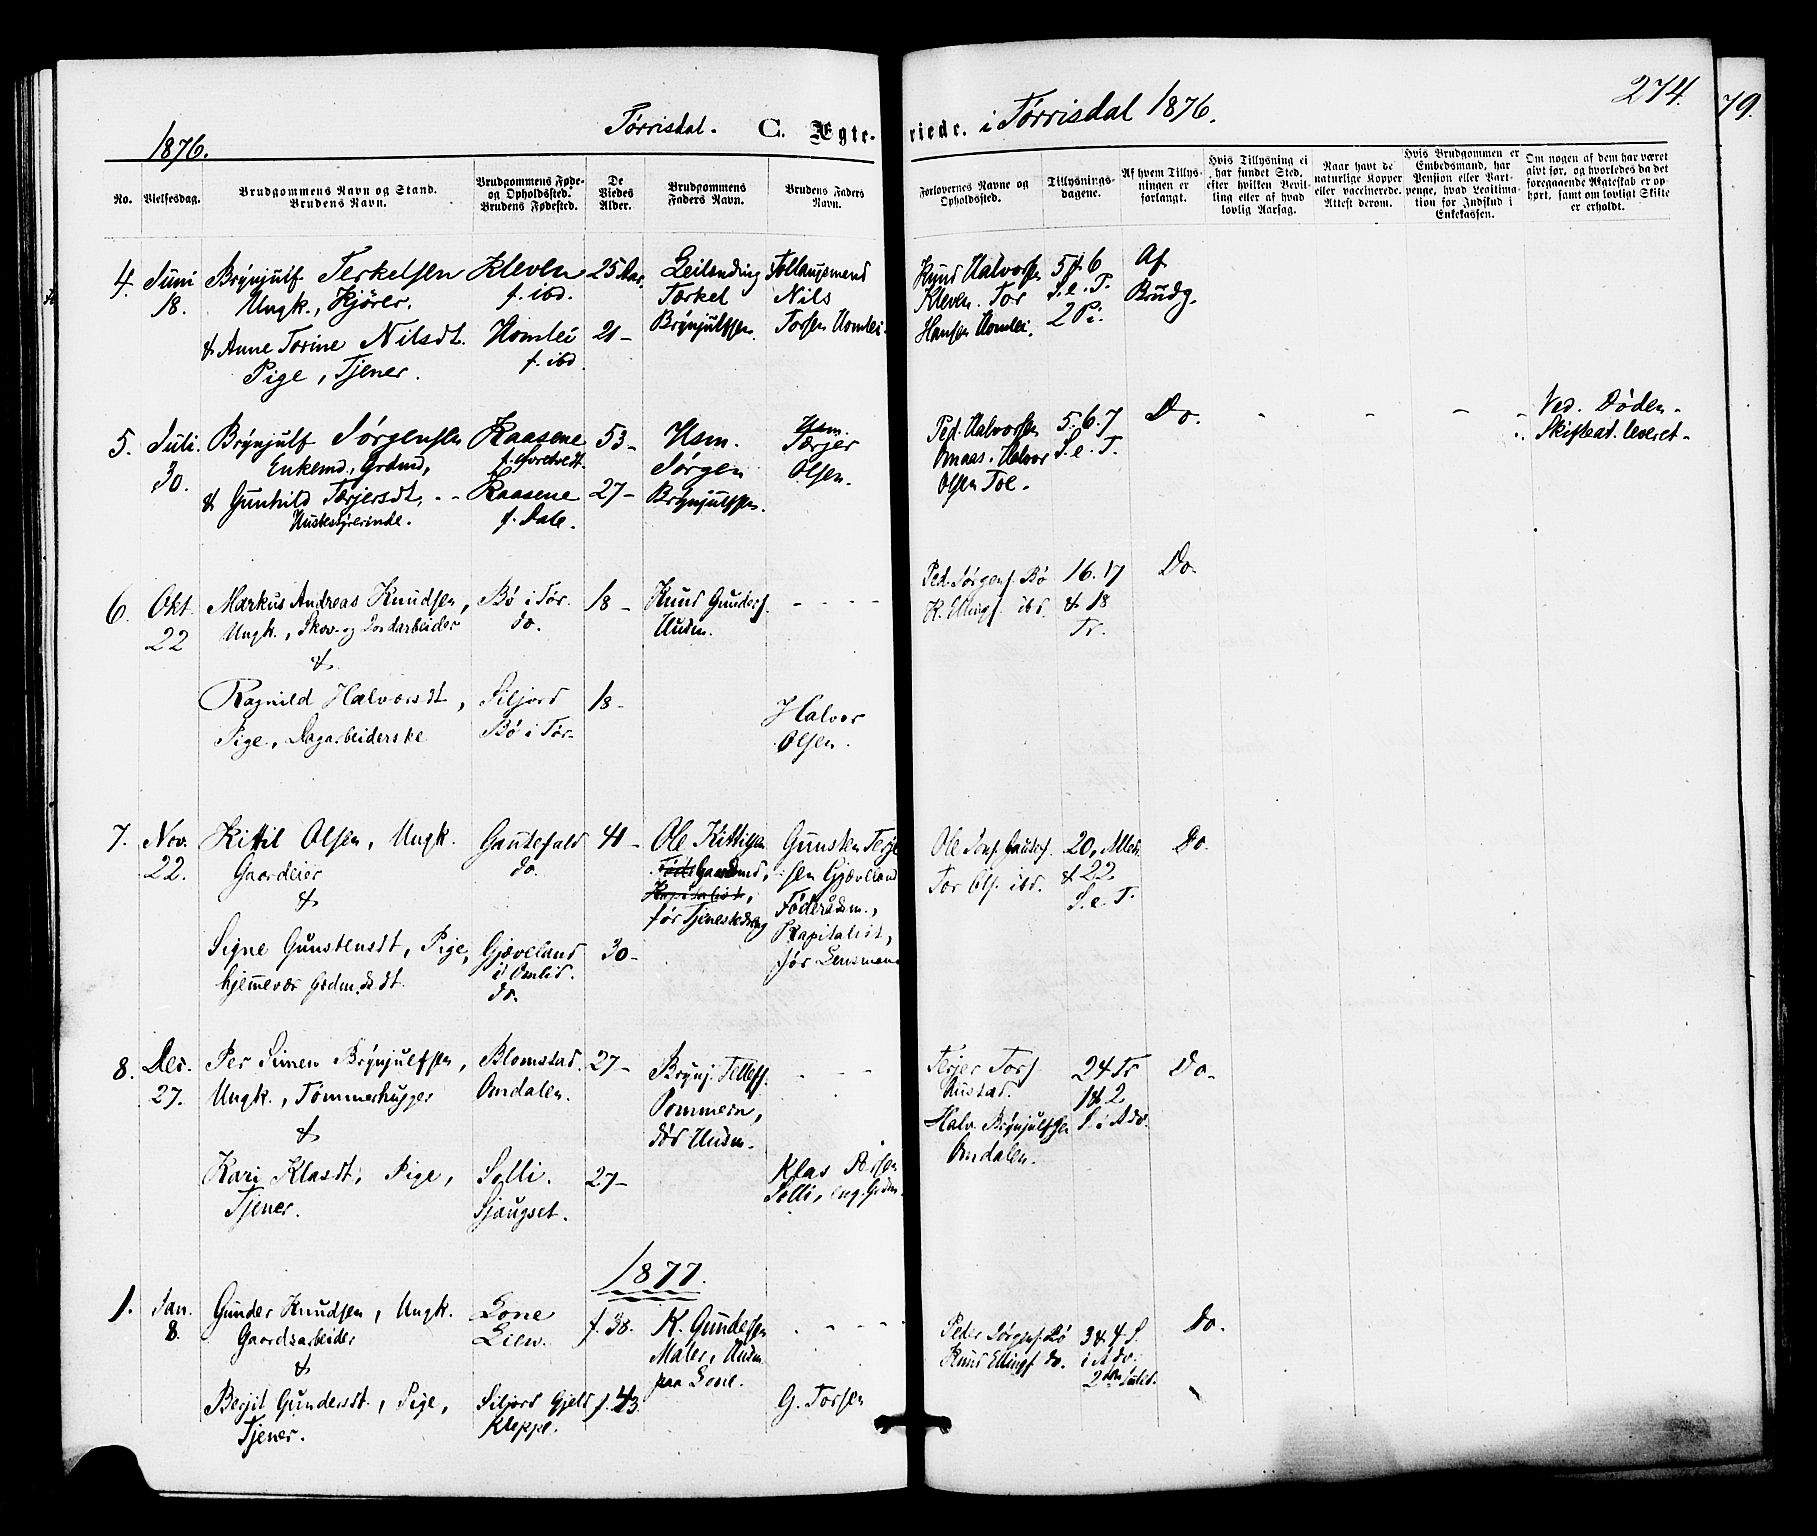 1876.
Tørrisdal. C. Ægte- viede. i Tørrisdal 1876.
274.
79.
No.
Vielsesdag.
Brudgommens Navn og Stand.
Brudens Navn.
Brudgommens Føde-
og Opholdssted.
Brudens Fødested.
De
Viedes
Alder.
Brudgommens
Faders Navn.
Brudens Faders
Navn.
Forlovernes Navne og
Opholdssted.
Tillysnings-
dagene.
Af hvem Tillys-
ningen er
forlangt.
Hvis Tillysning ei
har fundet Sted,
efter hvilken Bevil-
ling eller af hvad
lovlig Aarsag.
Naar havt de
naturlige Kopper
eller vaccinerede.
Attest derom.
Hvis Brudgommen er
Embedsmand, har
Pension eller Vart-
penge, hvad Legitima-
tion for Indskud i
Enkekassen.
Om nogen af dem har været
givt før, og hvorledes da det
foregaaende Ægteskab er op-
hørt, samt om lovligt Skifte
er erholdt.
4.
Juni
18.
Brynjulf Terkelsen
Ungk., Kjører.
& Anne Torine Nilsdt.
Pige, Tjener.
Kleven
f. ibd.
Homlei
f. ibd.
25 Aar
21 -
Leilending
Tærkel
Brynjulfsen.
Nils
Torsen Homlei.
Knud Halvorsen
Kleven. Tor
Hansen Homlei.
5 & 6
S. e. T.
2 Pi.
Af
Brudg.
5.
Juli.
30.
Brynjulf Jørgensen
Enkemd., Grdmd,
& Gunhild Tærjersdt, - -
Husbestyrerinde.
Kaasene
Kaasene
f. Dale.
53 -
27 -
Hsm.
Jørgen
Brynjulfsen.
Hsm.
Tærjer
Olsen.
Ped. Halvorsen
Omaas. Halvor
Olsen Toe.
5. 6. 7
S. e. T.
Do. - - - -
Ved. Døden -
Skifteat. leveret -
6.
Okt.
22
Markus Andreas Knudsen,
Ungk., Skov- og Jordarbeider
&
Ragnild Halvorsdt,
Pige, Dagarbeiderske
Bø i Tør.
do.
Siljord
Bø i Tør.
18 -
18 -
Knud Gunders.
Husm.
- - - -
Halvor
Olsen.
Ped. Jørgens. Bø
K. Ellings. ibd.
16. 17
& 18
Tr.
Do.
7.
Nov.
22.
Kittil Olsen, Ungk.
Gaardeier
&
Signe Gunstensdt, Pige,
hjemmevær Grdm.dt.
Gautefald
do.
Gjæveland
i Omlid.
do.
41 -
30 -
Ole Kittilsen
Gaardmd,
Kapitalist,
før Tjenestedreng
Gunsten Terje-
sen Gjæveland
Føderådsm.,
Kapitalist,
før Lensmand
Tor Ols. ibd.
20, Alleh.
& 22.
S. e. T.
Do.
8.
Des.
27.
Per Simen Brynjulfsen,
Ungk., Tømmerhugger
&
Kari Klasdt, Pige,
Tjener.
Blomstad.
Omdalen.
Solli.
Sjaugset.
27 -
27 -
Brynj. Tellefs.
Pommern,
død Husm.
- - -
Klas Persen
Solli,
Terjer Tors.
Rustad.
Halv. Brynjulfsen
Omdalen.
24 Tr
1 & 2
S. i Adv.
Do.
1877.
1.
Jan.
8.
Gunder Knudsen, Ungk.
Gaardsarbeider
&
Berjit Gundersdt., Pige,
Tjener.
Lone
Lien.
Siljord Gjeld
Kleppe.
f. 38.
f. 43.
K. Gundersen
Maler, Husm.
paa Lone.
- - - -
G. Torsen
Peder Jørgens. Bø
Knud Ellings. do.
3 & 4 S.
i Adv.
2den Juled.
Do.